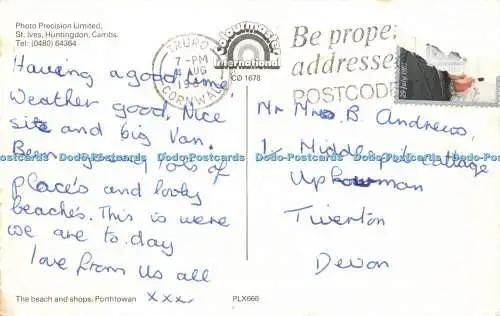 Photo Precision Limited,
St. Ives, Huntingdon, Cambs.
Tel: (0480) 64364
Having a good time
Weather good, Nice
site and big Van.
Been seeing lots of
place's and lovly
beaches. This is were
we are to-day
love from us all
xxx
The beach and shops, Porthtowan
PLX666
Colourmaster
International
CO 1678
TRURO
7-PM
AUG
CORNWALL
Be proper
addressed
POSTCODE
Mr Mrs B. Andrews,
1 Middle cottage
Uplowman
Tiverton
Devon
Dodo-Postcards Dodo-Postcards Dodo-Postcards Dodo-Postcards Dodo-Postcards